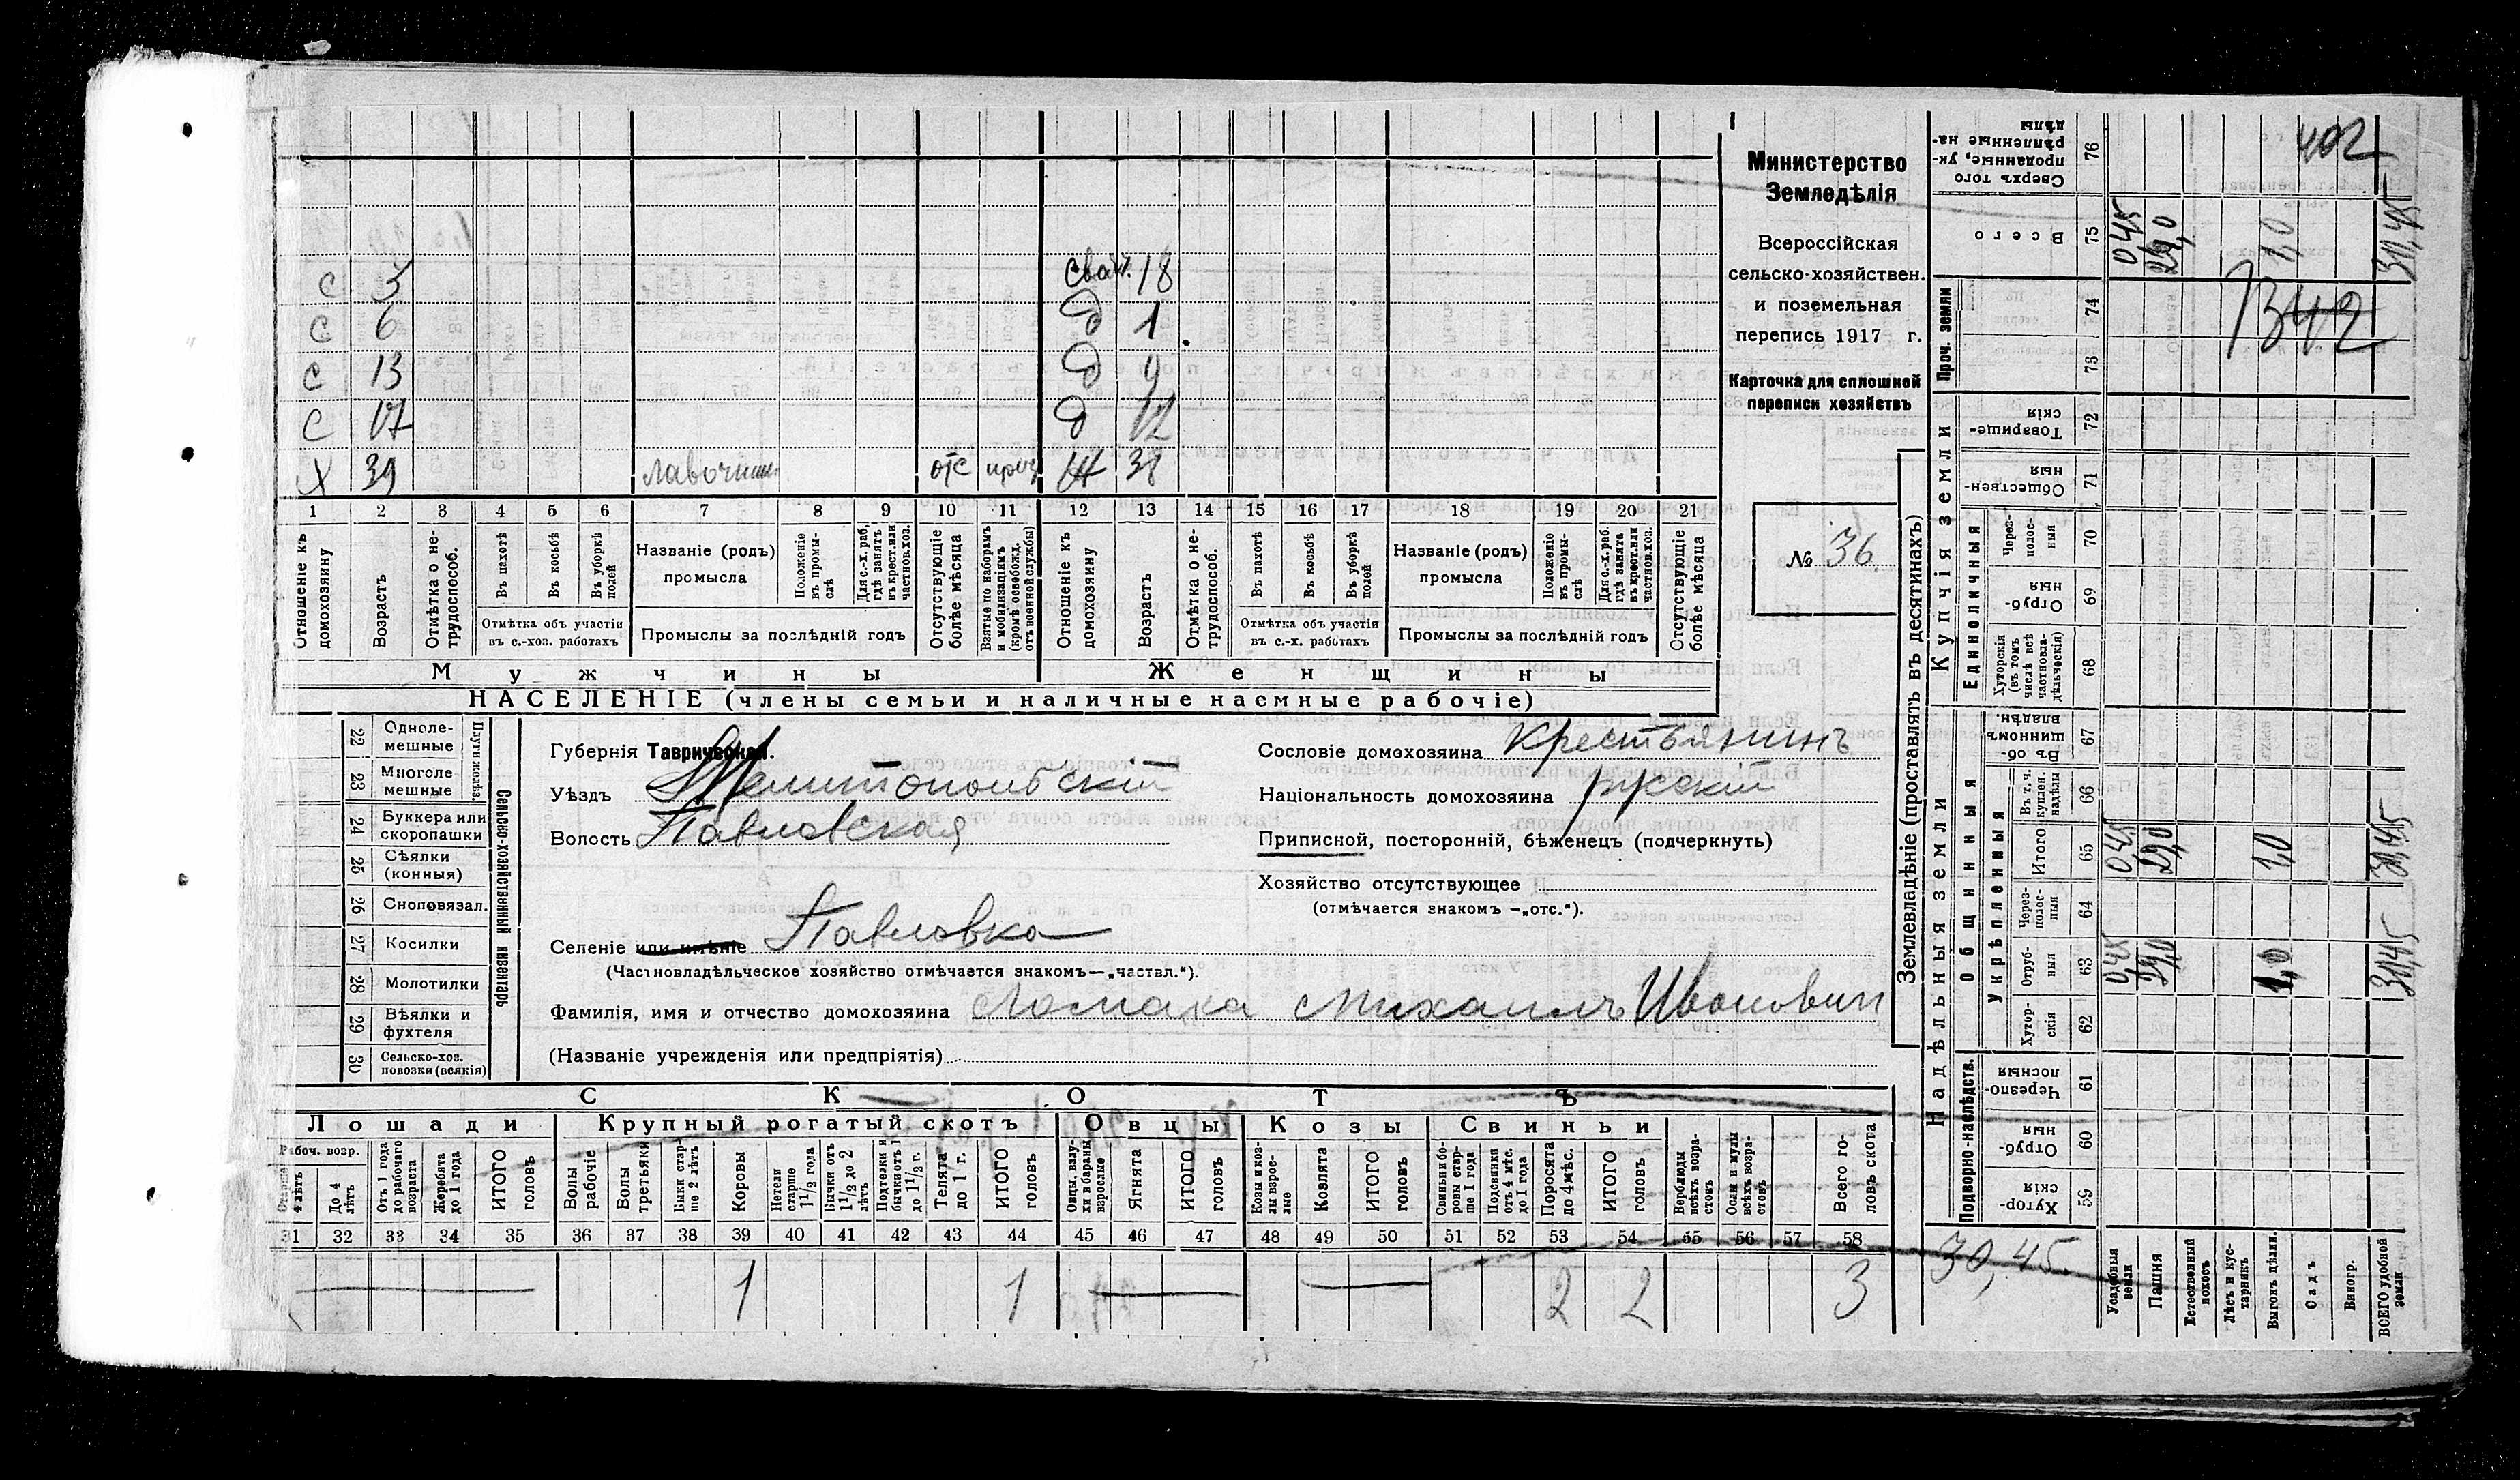 402
Министерство
Земледѣлія
Всероссійская
сельско-хозяйствен.
и поземельная
перепись 1917 г.
Карточка для сплошной
переписи хозяйствъ
№ 36
с 3 18
с 6 д 1
с 13 д 9
с 17 д 12
Х 39 отс Ж 38
1 2 3 4 5 6 7 8 9 10 11 12 13 14 15 16 17 18 19 20 21
Отношеніе къ домохозяину
Возрастъ
Отмѣтка о не-трудоспособ.
Въ пахотѣ
Въ косьбѣ
Въ уборкѣ полей
Отмѣтка объ участіи въ с.-хоз. работахъ
Названіе (родъ) промысла
Положеніе въ промы-слѣ
Для с.-х. раб. гдѣ занятъ въ крест. или частнов. хоз.
Промыслы за послѣдній годъ
Отсутствующіе болѣе мѣсяца
Взятые по наборамъ и мобилизаціямъ (кромѣ освобожд. отъ военной службы)
Отношеніе къ домохозяину
Возрастъ
Отмѣтка о не-трудоспособ.
Въ пахотѣ
Въ косьбѣ
Въ уборкѣ полей
Отмѣтка объ участіи въ с.-х. работахъ
Названіе (родъ) промысла
Положеніе въ промы-слѣ
Для с.-х. раб. гдѣ занята въ крест. или частнов. хоз.
Промыслы за послѣдній годъ
Отсутствующіе болѣе мѣсяца
Мужчины Женщины
НАСЕЛЕНІЕ (члены семьи и наличные наемные рабочіе)
Сельско-хозяйственный инвентарь
Плуги желѣз.
22 Одноле-мешные
23 Многоле мешные
24 Буккера или скоропашки
25 Сѣялки (конныя)
26 Сноповязал.
27 Косилки
28 Молотилки
29 Вѣялки и фухтеля
30 Сельско-хоз. повозки (всякія)
Губернія Таврическая.
Уѣздъ Мелитопольскій
Волость Павловская
Селеніе или имѣніе Павловка
(Частновладѣльческое хозяйство отмѣчается знакомъ—„частвл.“).
Фамилія, имя и отчество домохозяина Ломака Михаилъ Иванович
(Названіе учрежденія или предпріятія)
Сословіе домохозяина Крестьянинъ
Національность домохозяина русскій
Приписной, посторонній, бѣженец (подчеркнуть)
Хозяйство отсутствующее
(отмѣчается знакомъ —„отс.“).
СКОТЪ
Лошади Крупный рогатый скотъ Овцы Козы Свиньи
Рабоч. возр.
Старше 4 лѣтъ
До 4 лѣтъ
Отъ 1 года до рабочаго возраста
Жеребята до 1 года
ИТОГО головъ
Волы рабочіе
Волы третьяки
Быки стар-ше 2 лѣтъ
Коровы
Нетели старше 1½ года
Бычки отъ 1½ до 2 лѣтъ
Подтелки и бычки отъ 1 до 1½ г.
Телята до 1 г.
ИТОГО головъ
Овцы, валу-хи и бараны взрослые
Ягнята
ИТОГО головъ
Козы и коз-лы взрос-лые
Козлята
ИТОГО головъ
Свиньи и бо-ровы стар-ше 1 года
Подсвинки отъ 4 мѣс. до 1 года
Поросята до 4 мѣс.
ИТОГО головъ
Верблюды всѣхъ возра-стовъ
Ослы и мулы всѣхъ возра-стовъ
Всего го-ловъ скота
31 32 33 34 35 36 37 38 39 40 41 42 43 44 45 46 47 48 49 50 51 52 53 54 55 56 57 58
1 1 2 2 3
Землевладѣніе (проставлять въ десятинахъ)
Надѣльныя земли
Купчія земли
Проч. земли
Подворно-наслѣдств.
Общинныя
Укрѣпленныя
Единоличныя
76 Сверхъ того проданные, ук-рѣпленные на-дѣлы
75 Всего 0,45 29,0 1,0 30,45
74
1342
73
72 Товарище-скія
71 Обществен-ныя
70 Через-полос-ныя
69 Отруб-ныя
68 Хуторскія (въ томъ числѣ всѣ частновла-дѣльческія)
67 Въ об-щинномъ владѣн.
66 Въ т. ч. куплен. надѣлы
65 Итого 0,45 29,0 1,0 30,45
64 Через-полос-ныя
63 Отруб-ныя 0,45 29,0 1,0 30,45
62 Хутор-скія
61 Черезпо-лосныя
60 Отруб-ныя
59 Хутор-скія
30,45.
Усадебныя земли
Пашня
Естественный покосъ
Лѣсъ и кус-тарникъ
Выгонъ дѣлин.
Садъ
Виногр.
ВСЕГО удобной земли